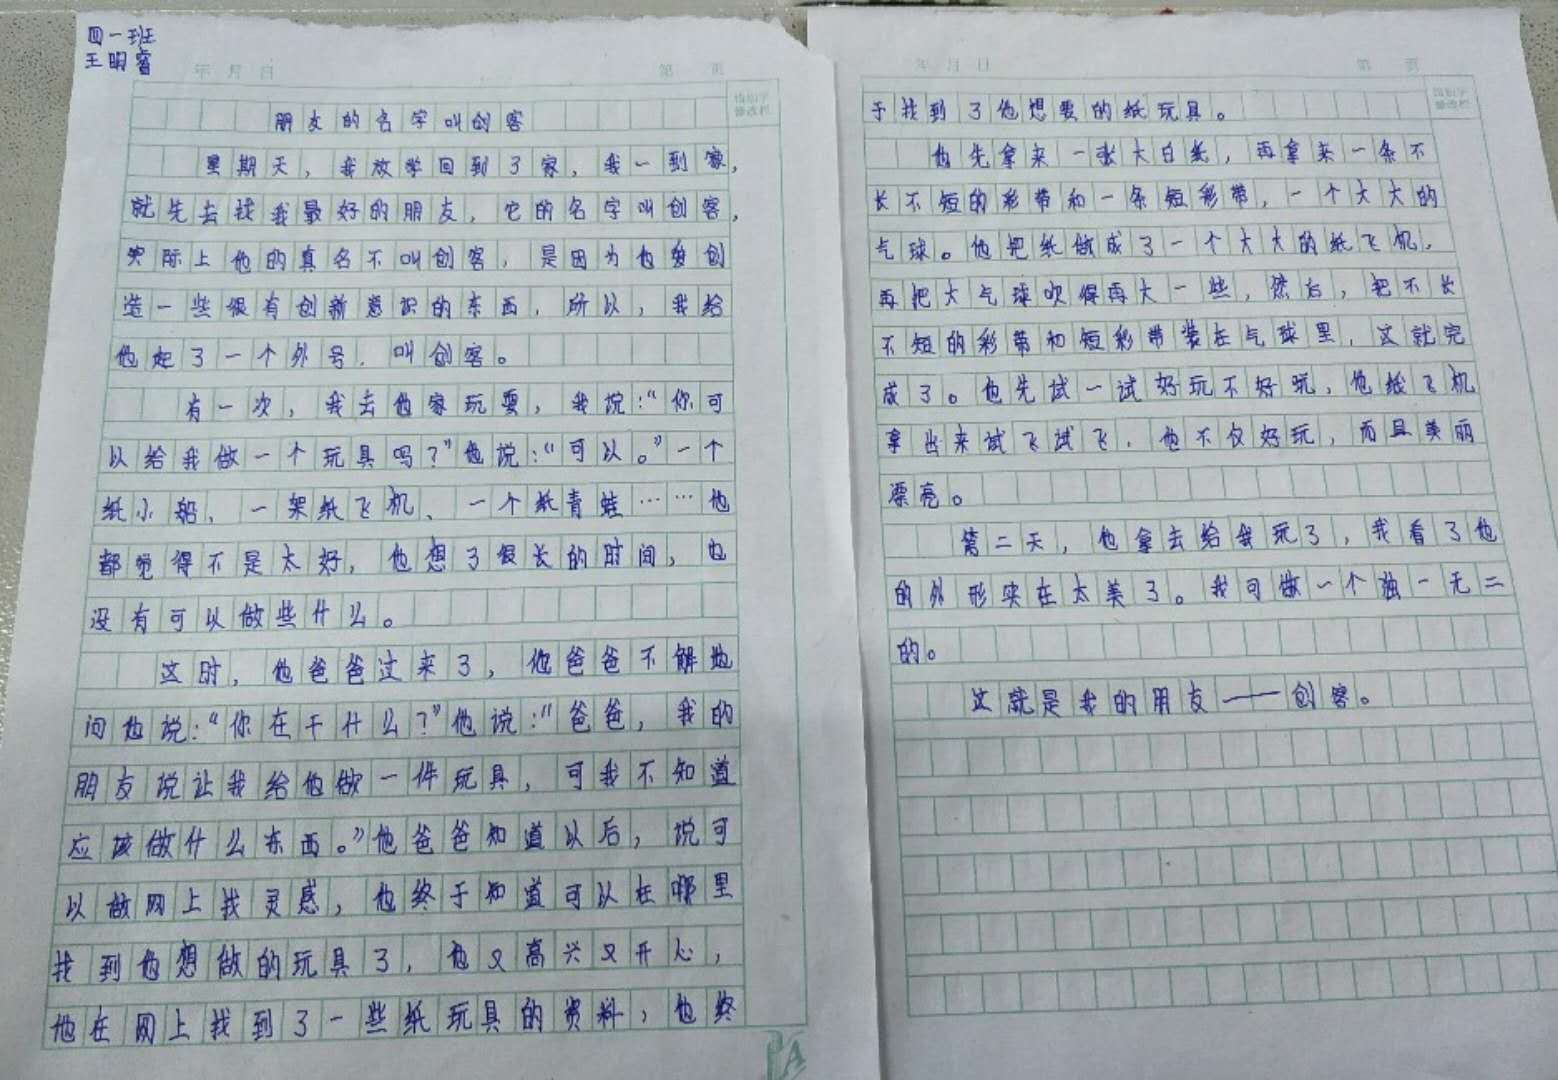 四一班
王明睿
年 月 日
第 页
朋友的名字叫创客
星期天，我放学回到了家，我一到家，
就先去找我最好的朋友，它的名字叫创客，
实际上他的真名不叫创客，是因为他爱创
造一些很有创新意识的东西，所以，我给
他起了一个外号，叫创客。
有一次，我去他家玩耍，我说：“你可
以给我做一个玩具吗？”他说：“可以。”一个
纸小船、一架纸飞机、一个纸青蛙……他
都觉得不是太好，他想了很长的时间，也
没有可以做些什么。
这时，他爸爸过来了，他爸爸不解地
问他说：“你在干什么？”他说：“爸爸，我的
朋友说让我给他做一件玩具，可我不知道
应该做什么东西。”他爸爸知道以后，说可
以做网上找灵感，他终于知道可以在哪里
找到他想做的玩具了，他又高兴又开心，
他在网上找到了一些纸玩具的资料，他终
年 月 日
第 页
于找到了他想要的纸玩具。
他先拿来一张大白纸，再拿来一条不
长不短的彩带和一条短彩带，一个大大的
气球。他把纸做成了一个大大的纸飞机，
再把大气球吹得再大一些，然后，把不长
不短的彩带和短彩带装在气球里，这就完
成了。他先试一试好玩不好玩，他纸飞机
拿出来试飞试飞，他不仅好玩，而且美丽
漂亮。
第二天，他拿去给我玩了，我看了他
的外形实在太美了。我可做一个独一无二
的。
这就是我的朋友——创客。